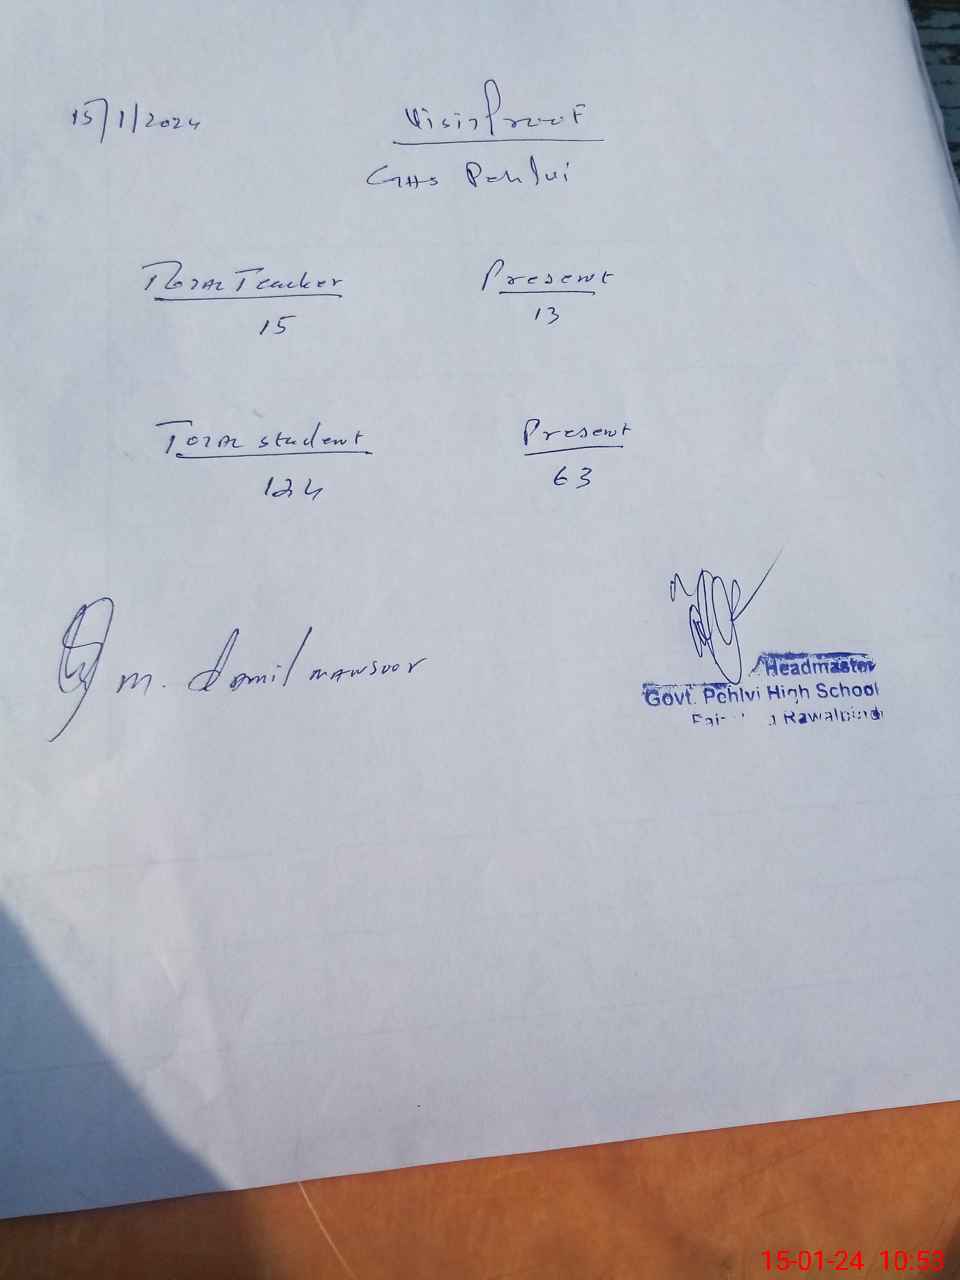 15/1/2024
Visit Proof
GHS Pehlvi
Total Teacher Present
15 13
Total student Present
124 63
M. Jamil Mansoor
Headmaster
Govt. Pehlvi High School
Rawalpindi
15-01-24 10:53